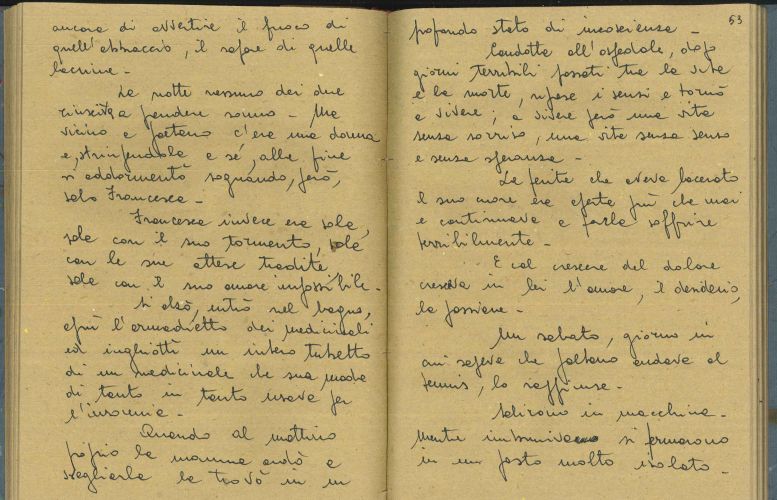 ancora di avvertire il fuoco di
quell'abbraccio, il sapore di quelle
lacrime -
La notte nessuno dei due
riusciva a prendere sonno - Ma
vicino a Gaetano c'era una donna
e, stringendola a sé, alla fine
si addormentò sognando, però,
solo Francesca -
Francesca invece era sola,
sola con il suo tormento, sola
con le sue attese tradite,
sola con il suo amore impossibile -
Si alzò, entrò nel bagno,
aprì l'armadietto dei medicinali
ed inghiottì un intero tubetto
di un medicinale che sua madre
di tanto in tanto usava per
l'insonnia -
Quando al mattino
la mamma andò a
svegliarla la trovò in un
53
profondo stato di incoscienza -
Condotta all'ospedale, dopo
giorni terribili passati tra la vita
e la morte, riprese i sensi e tornò
a vivere; a vivere però una vita
senza sorriso, una vita senza senso
e senza speranza -
La ferita che aveva lacerato
il suo cuore era aperta più che mai
e continuava a farla soffrire
terribilmente -
E col crescere del dolore
cresceva in lei l'amore, il desiderio,
la passione -
Un sabato, giorno in
cui sapeva che Gaetano andava al
tennis, lo raggiunse -
Salirono in macchina -
Mentre imbruniva si fermarono
in un posto molto isolato -